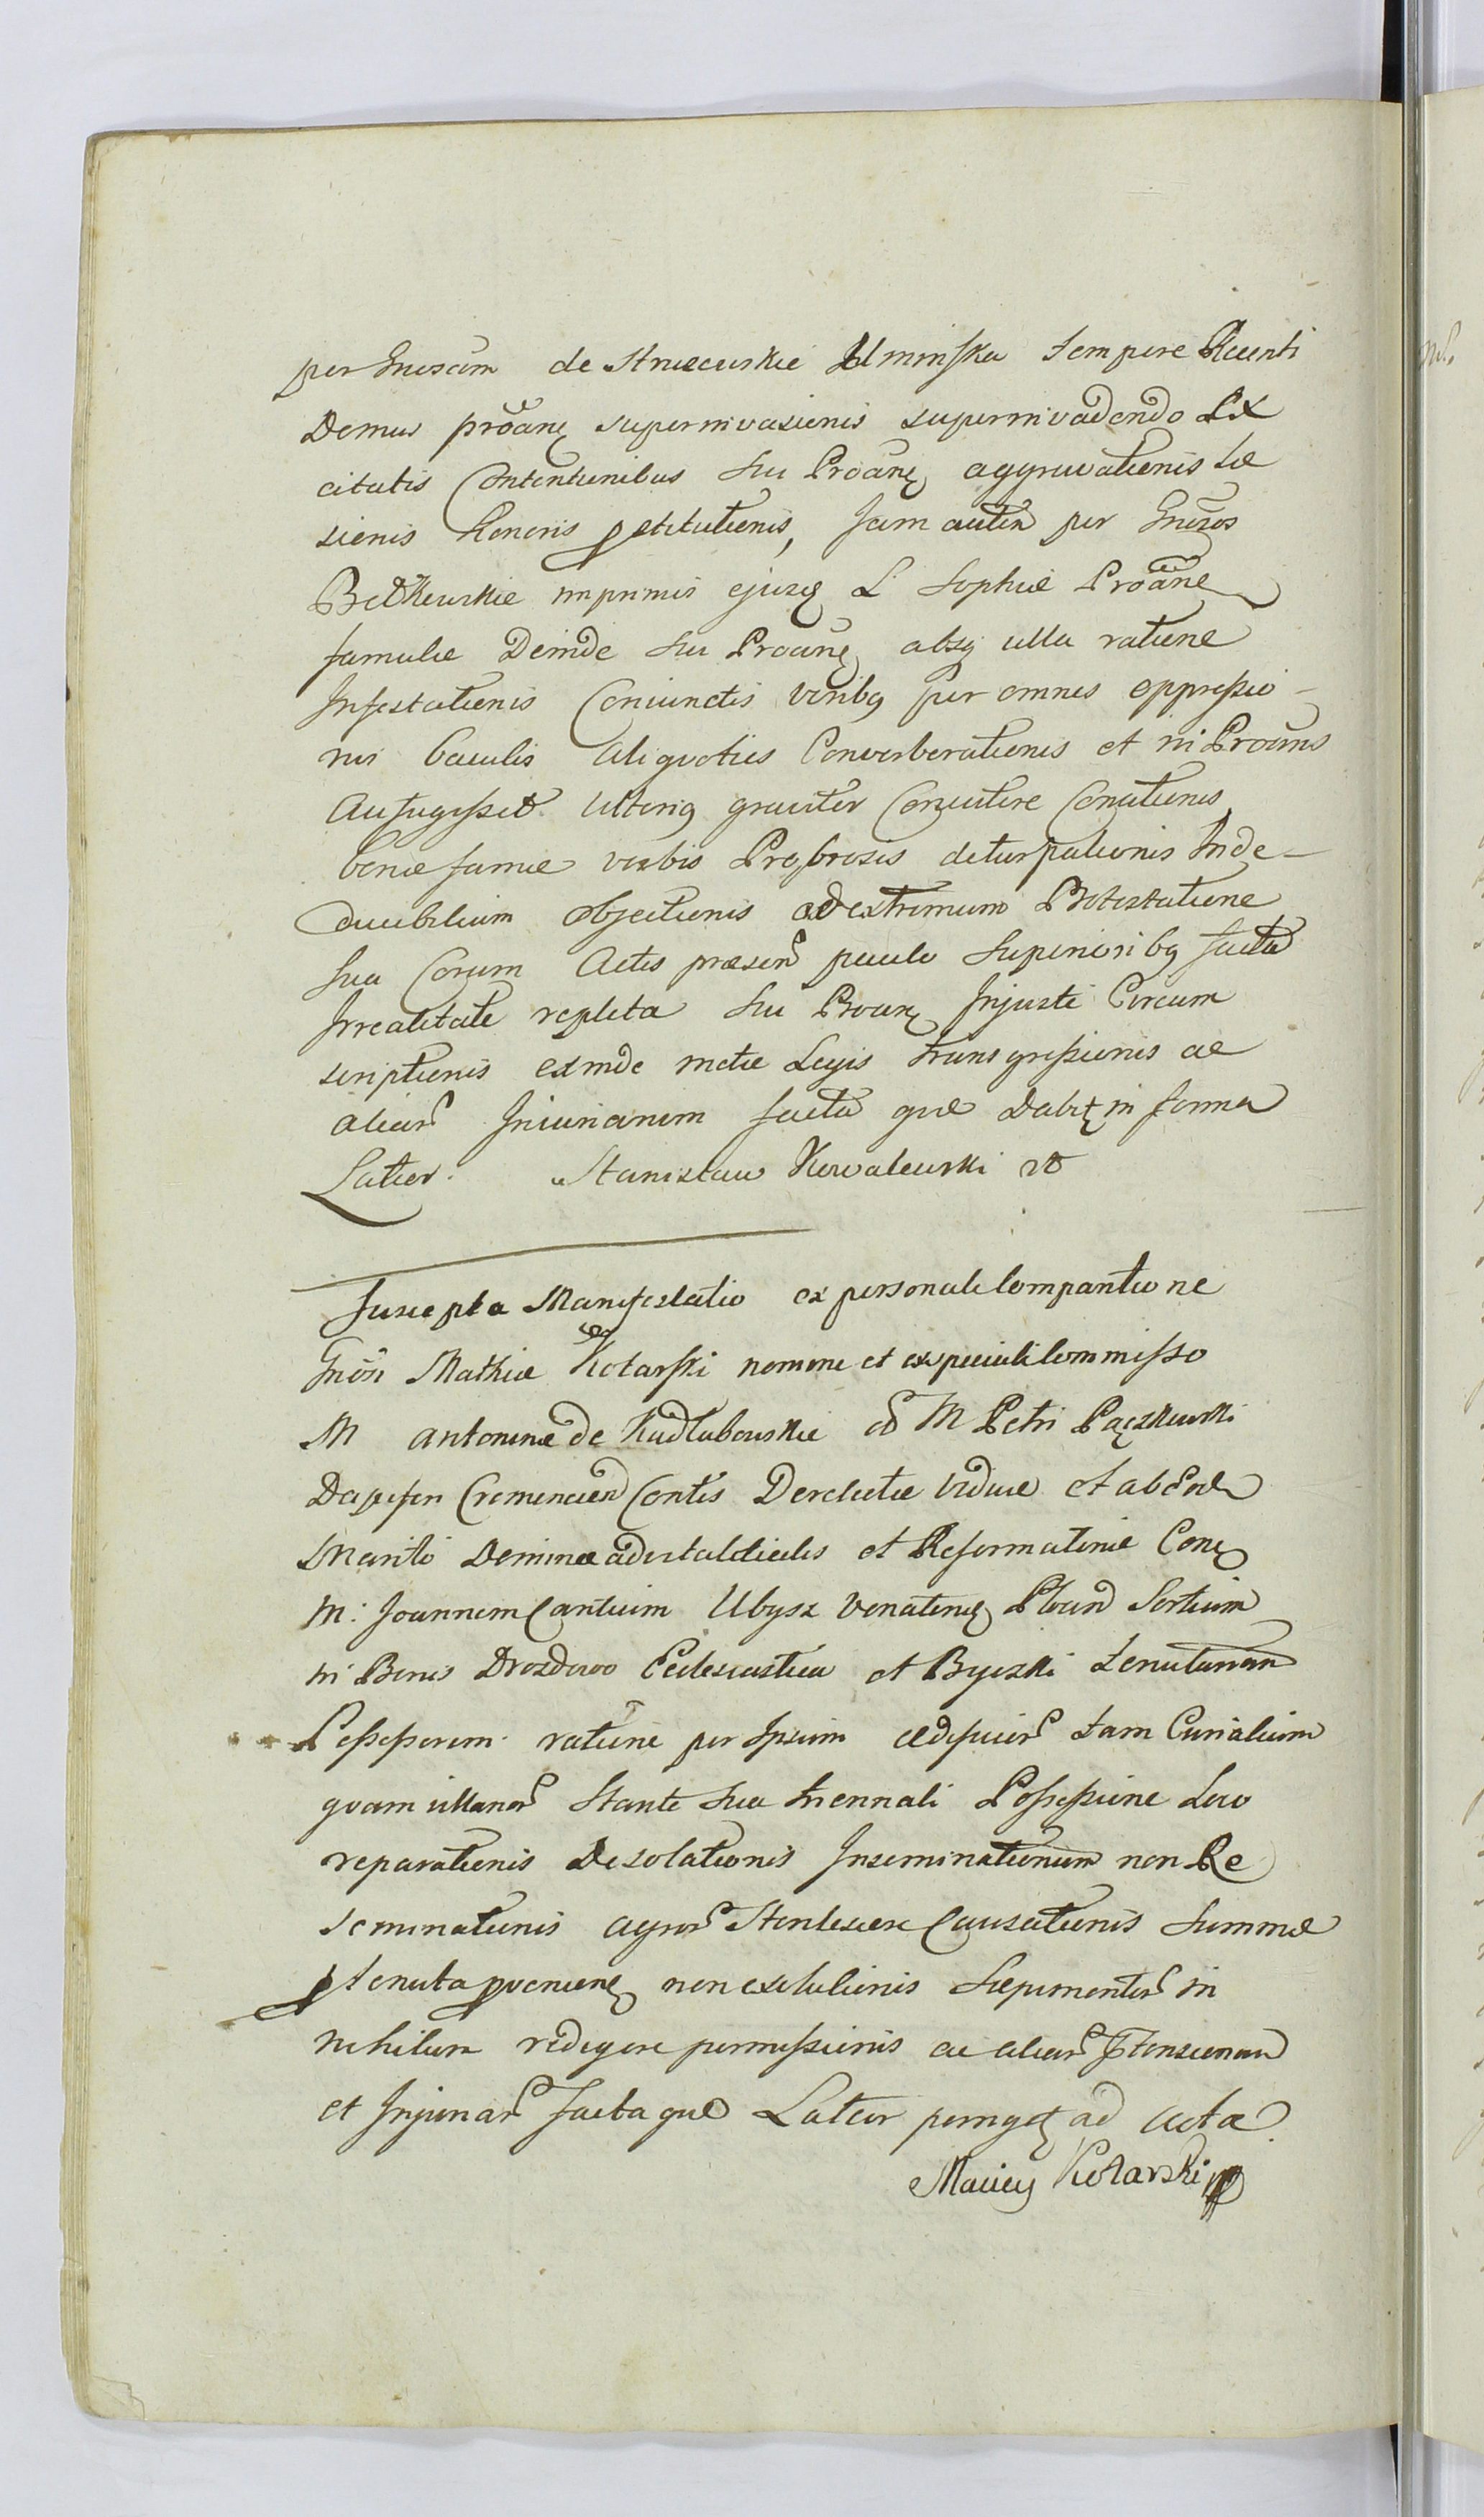 per Gnosam de Strusewskie Uminska tempore Recenti
Domus proane superinvasionis superinvadendo Ex
citatis Contentionibus Su Proane aggravationis Lae
sionis honoris pstitutionis, Jam autem per Gnosos
Bethkowskie inprimis ejusq L Sophiae Proane
famulae Deinde Su Proane absq ulla ratione
Infestationis Coniunctis viribq per omnes oppressio-
nes baculis aliquoties Converberationis et ni Proans
Aufugisset ulteriq graviter Concutere Conationis
bonae famae verbis Probrosis deturpationis Inde-
ducibilium objectionis ad extremum Protestatione
sua Coram Actis praesen paulo Superioribq facta
Irrealitate repleta Su Proane Injuste Circum
scriptionis exinde metae Legis transgressionis ac
aliar Iniuriarum facta que Dabit in forma
Latior. Stanisław Kowalewski
Suscepta Manifestatio ex personali Comparitione
Gnosi Mathiae Kotarski nomine et ex speciali Commisso
M Antoninae de Kudłubowskie od M Petri Pączkowski
Dapiferi Cremencien Contis Derelictae viduae et ab Eodem
Marito Dominae advitalitialis et Reformatoriae Cone
M: Joannem Cantium Ubysz Venatorem Plocen Sortium
in Bonis Drozdowo Ecclesiastica et Byczki Tenutarium
Possessorem ratione per Ipsum aedificior tam Curialium
quam villanor Stante sua triennali Possessione Loco
reparationis Desolationis Inseminationum non Re
seminationis agror Sterilescere Causationis Summae
p tenuta pvenien non exolutionis Sepimentor in
nihilum redigere permissionis ac aliar Ptensionum
et Injuriar facta que Latior porriget ad acta
Maciey Kotarski